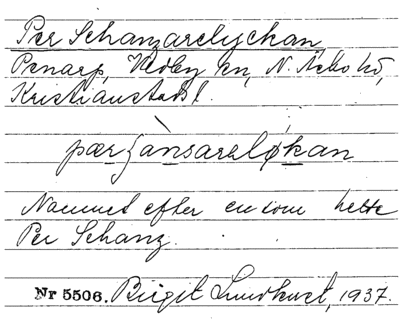 Per Schanzarelyckan
Penarp, Vedby sn, N. Åsbo hd,
Kristianstads l.
pær ʃànsarelø̀kan
Namnet efter en som hette
Per Schanz.
Nr 5506. Birgit Lundkvist, 1937.